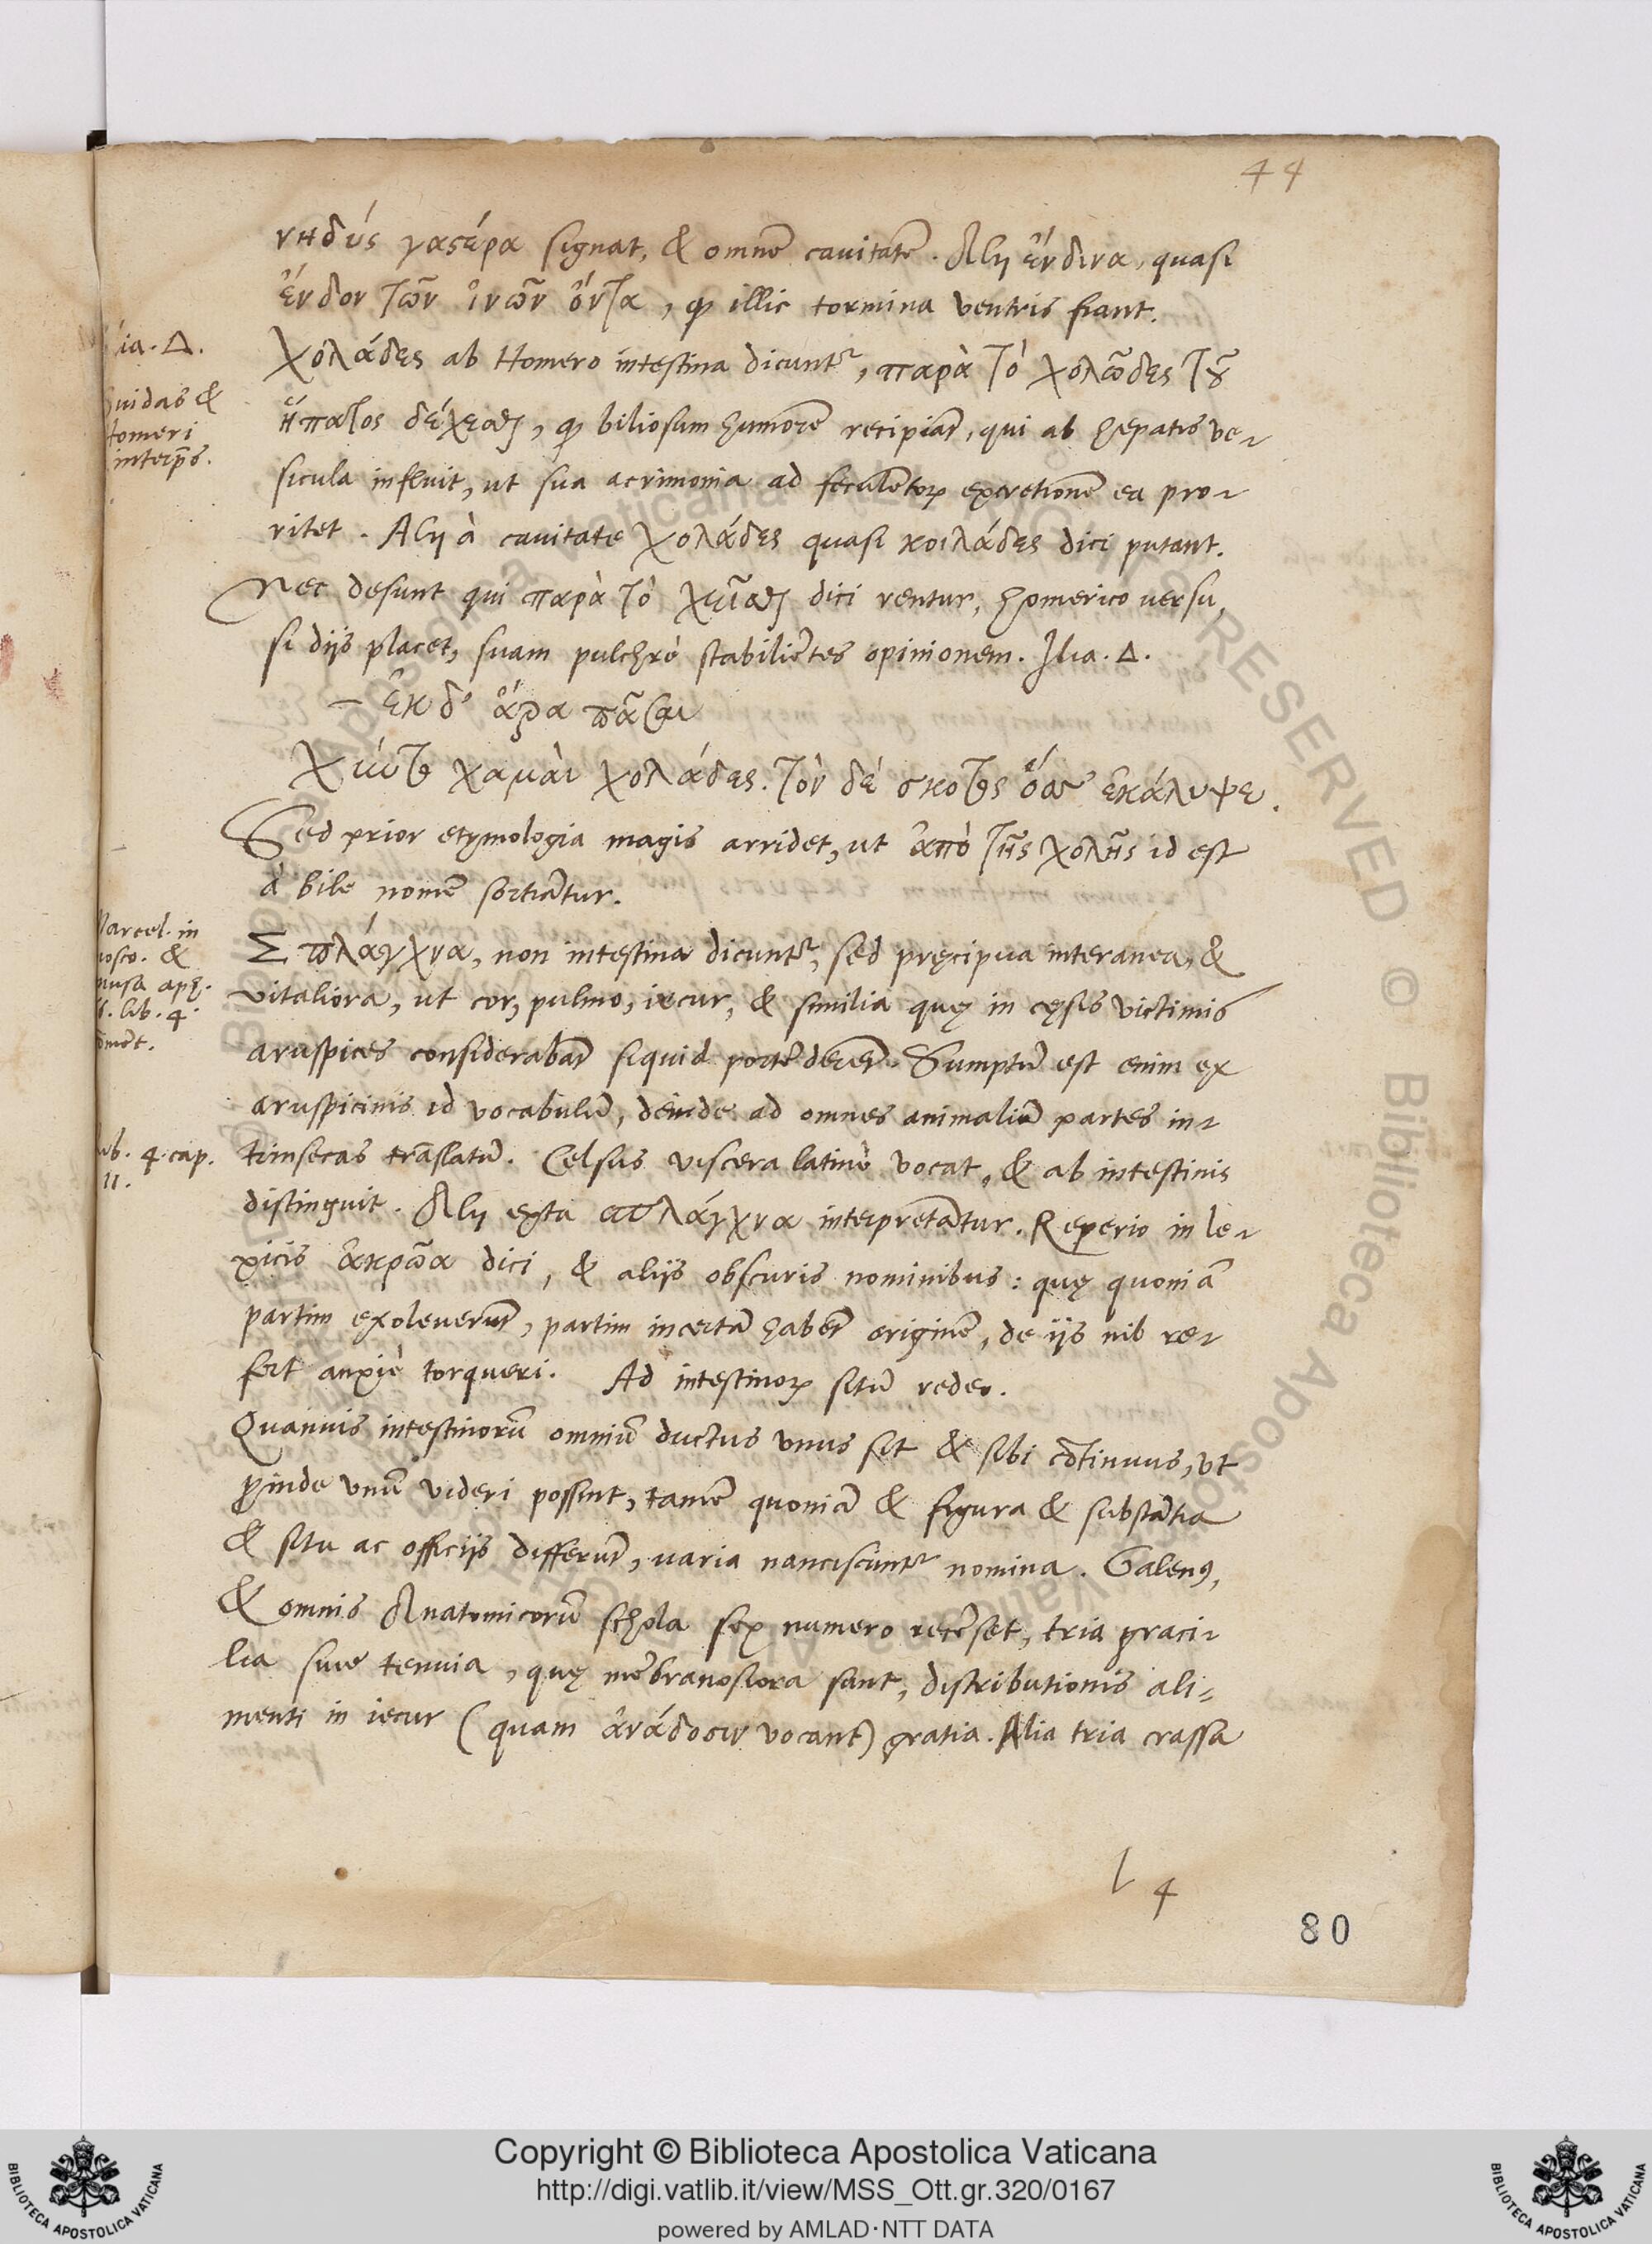 44
νηδύς γαςέρα signat, & omnē cauitatē. Alij ἔνδινα, quasi
ἔνδον τῶν ἰνῶν ὄντα, qđ illic tormina ventris fiant.
ία. Δ.
Χολάδες ab Homero intestina dicuntr, παρὰ τὸ χολῶδες τȣ͂
uidas &
omeri
interp̄s.
ἥπατος δέχεσθαι, qđ biliosum humorē recipiāt, qui ab hepatis ve-
sicula influit, ut sua acrimonia ad feculētoꝝ excretionē ea pro-
ritet. Alij à cauitate χολάδες quasi κοιλάδες dici putant.
Nec desunt qui παρὰ τὸ χεῖσθαι dici rentur, homerico uersu,
si dijs placet, suam pulchrè stabiliētes opinionem. Ilia. Δ.
— ἐκ δ' ἄρα πᾶσαι
Χύντο χαμαὶ χολάδες. τὸν δέ σκοτος ὄσσ' ἐκάλυψε.
Sed prior etymologia magis arridet, ut ἀπὸ τῆς χολῆς id est
à bile nomē sortiātur.
arcel. in
iosco. &
ib. 4. cap.
11.
Σπλάγχνα, non intestina dicuntr, sed pręcipua interanea, &
vitaliora, ut cor, pulmo, iecur, & similia quę in cęsis victimis
aruspices considerabāt siquid portēderēt. Sumptū est enim ex
aruspicinis id vocabulū, deinde ad omnes animaliū partes in-
trinsecas trāslatū. Celsus viscera latinè vocat, & ab intestinis
distinguit. Alij exta σπλάγχνα interpretātur. Reperio in le-
xicis ἀκρῶα dici, & alijs obscuris nominibus: quę quoniā
partim exoleuerūt, partim incertā habēt originē, de ijs nib re-
fert anxiè torqueri. Ad intestinoꝝ sitū redeo.
Quamuis intestinorū omniū ductus vnus sit & sibi cōtinuus, vt
ꝓinde vnū videri possint, tamē quoniā & figura & substātia
& situ ac officijs differūt, uaria nanciscūntr nomina. Galenꝰ,
& omnis Anatomicorū schola sex numero recēset, tria graci-
lia siue tenuia, quę mēbranosiora sunt, distributionis ali-
menti in iecur (quam ἀνάδοσιν vocant) gratia. Alia tria crassa
l 4
80
Copyright © Biblioteca Apostolica Vaticana
http://digi.vatlib.it/view/MSS_Ott.gr.320/0167
powered by AMLAD·NTT DATA
BIBLIOTECA APOSTOLICA VATICANA
BIBLIOTECA APOSTOLICA VATICANA